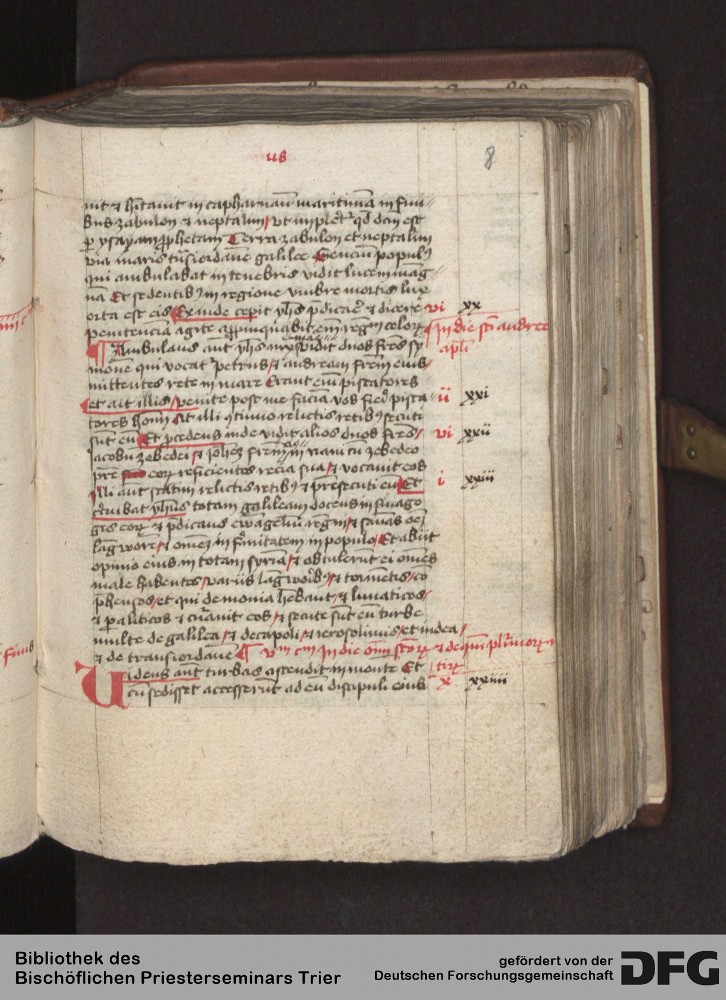 us
8
uit et hitauit in capharnau maritima in fini
bus zabulon et neptalim / vt impleret qd dcm est
p ysayam pphetam Terra zabulon et neptalim
via maris tnsiordane galilee Genciu populus
qui ambulabat in tenebris vidit lucem mag
na Et sedentibus in regione vmbre mortis lux
orta est eis Exinde cepit yhs pdicare et dicere vi xx
penitencia agite appinquabit em regnu celorum In die sti andree
apli
Ambulans aut yhs iuxta mare galilee vidit duos fres sy
mone qui vocat petrus / et andream frem eius
mittentes rete in mare Erant em piscatores
et ait illis / venite post me facia vos fieri pisca ii xxi
tores homi At illi continuo relictis retibus secuti
sut eu Et pcedens inde vidit alios duos fres / vi xxii
iacobu zebedei et iohem frem eius in naui cu zebedeo
pre eorum reficientes recia sua / et vocauit eos
Illi aut statim relictis retibus et pre secuti eu Et i xxiii
circuibat yhus totam galileam docens in sinago
gis eorum et pdicans ewangeliu regni / et sanas oem
lagwore / et omem infirmitatem in populo / Et abiit
opinio eius in totam syria / et obtulerut ei omes
male habentes / variis lagworibus / et tormetis / co
phensos / et qui demonia hebant / et lunaticos /
et paliticos et curauit eos / et secute sut eu turbe
multe de galilea / et decapoli / et ierosolimis / et iudea /
et de transiordane In die oim sctorum et de plurimorum
tirum
Uidens aut turbas ascendit in monte Et
cu sedisset accesserut ad eu discipuli eius x xxiiii
Bibliothek des
Bischöflichen Priesterseminars Trier
gefördert von der
Deutschen Forschungsgemeinschaft
DFG